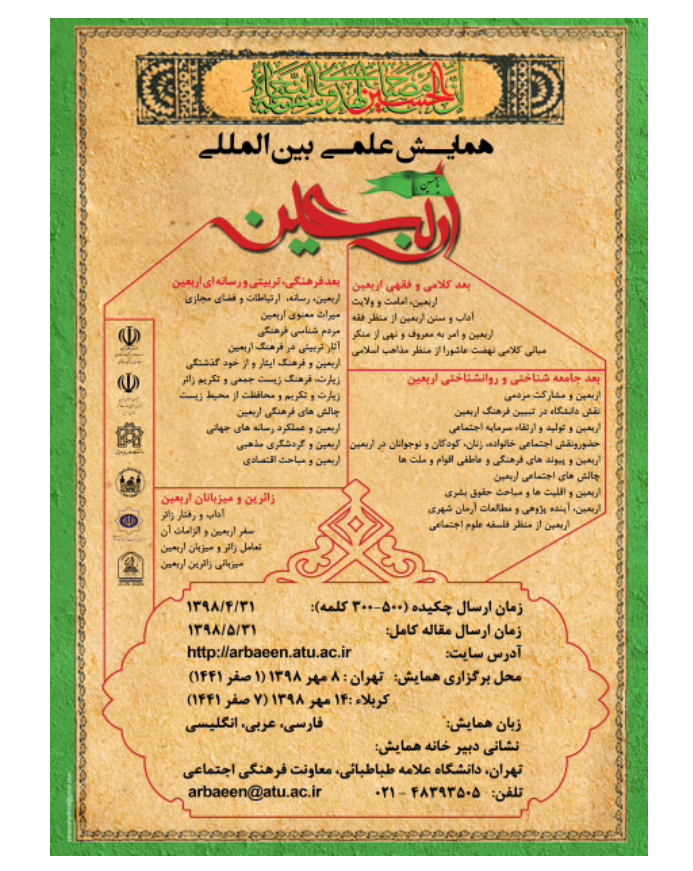 إن الحسين مصباح الهدی و سفینة النجاة
همایش علمی بین المللی
یا حسین
اربعین
بعد کلامی و فقهی اربعین
اربعین، امامت و ولایت
آداب و سنن اربعین از منظر فقه
اربعین و امر به معروف و نهی از منکر
مبانی کلامی نهضت عاشورا از منظر مذاهب اسلامی
بعد فرهنگی، تربیتی و رسانه ای اربعین
اربعین، رسانه، ارتباطات و فضای مجازی
میراث معنوی اربعین
مردم شناسی فرهنگی
آثار تربیتی در فرهنگ اربعین
اربعین و فرهنگ ایثار و از خود گذشتگی
زیارت، فرهنگ زیست جمعی و تکریم زائر
زیارت و تکریم و محافظت از محیط زیست
چالش های فرهنگی اربعین
اربعین و عملکرد رسانه های جهانی
اربعین و گردشگری مذهبی
اربعین و مباحث اقتصادی
بعد جامعه شناختی و روانشناختی اربعین
اربعین و مشارکت مردمی
نقش دانشگاه در تبیین فرهنگ اربعین
اربعین و تولید و ارتقاء سرمایه اجتماعی
حضورونقش اجتماعی خانواده، زنان، کودکان و نوجوانان در اربعین
اربعین و پیوند های فرهنگی و عاطفی اقوام و ملت ها
چالش های اجتماعی اربعین
اربعین و اقلیت ها و مباحث حقوق بشری
اربعین، آینده پژوهی و مطالعات آرمان شهری
اربعین از منظر فلسفه علوم اجتماعی
زائرین و میزبانان اربعین
آداب و رفتار زائر
سفر اربعین و الزامات آن
تعامل زائر و میزبان اربعین
میزبانی زائرین اربعین
زمان ارسال چکیده (۵۰۰-۳۰۰ کلمه): ۱۳۹۸/۴/۳۱
زمان ارسال مقاله کامل: ۱۳۹۸/۵/۳۱
آدرس سایت: http://arbaeen.atu.ac.ir
محل برگزاری همایش: تهران : ۸ مهر ۱۳۹۸ (۱ صفر ۱۴۴۱)
کربلاء :۱۴ مهر ۱۳۹۸ (۷ صفر ۱۴۴۱)
زبان همایش: فارسی، عربی، انگلیسی
نشانی دبیر خانه همایش:
تهران، دانشگاه علامه طباطبائی، معاونت فرهنگی اجتماعی
تلفن: ۴۸۳۹۳۵۰۵ - ۰۲۱ arbaeen@atu.ac.ir